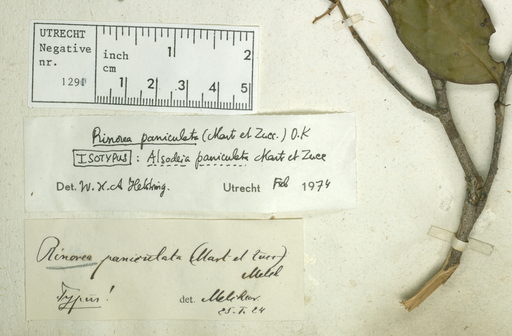 UTRECHT
Negative
nr.
1291
inch
1 2
cm
1 2 3 4 5
Rinorea paniculata (Mart et Zucc.) O.K
ISOTYPUS : Alsodeia paniculata Mart et Zucc
Det. W. H. A Hekking. Utrecht Feb 1974
Rinorea paniculata (Mart et Zucc)
Melch
Typus! det. Melchior
25.I.24